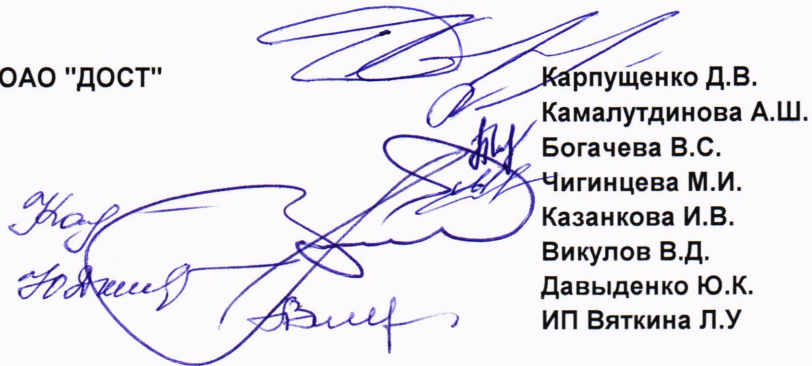 ОАО "ДОСТ"
Карпущенко Д.В.
Камалутдинова А.Ш.
Богачева В.С.
Чигинцева М.И.
Казанкова И.В.
Викулов В.Д.
Давыденко Ю.К.
ИП Вяткина Л.У